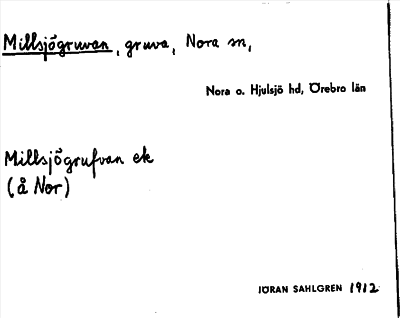 Millsjögruvan, gruva, Nora sn,
Nora o. Hjulsjö hd, Örebro län
Millsjögrufvan ek
(å Nor)
JÖRAN SAHLGREN 1912